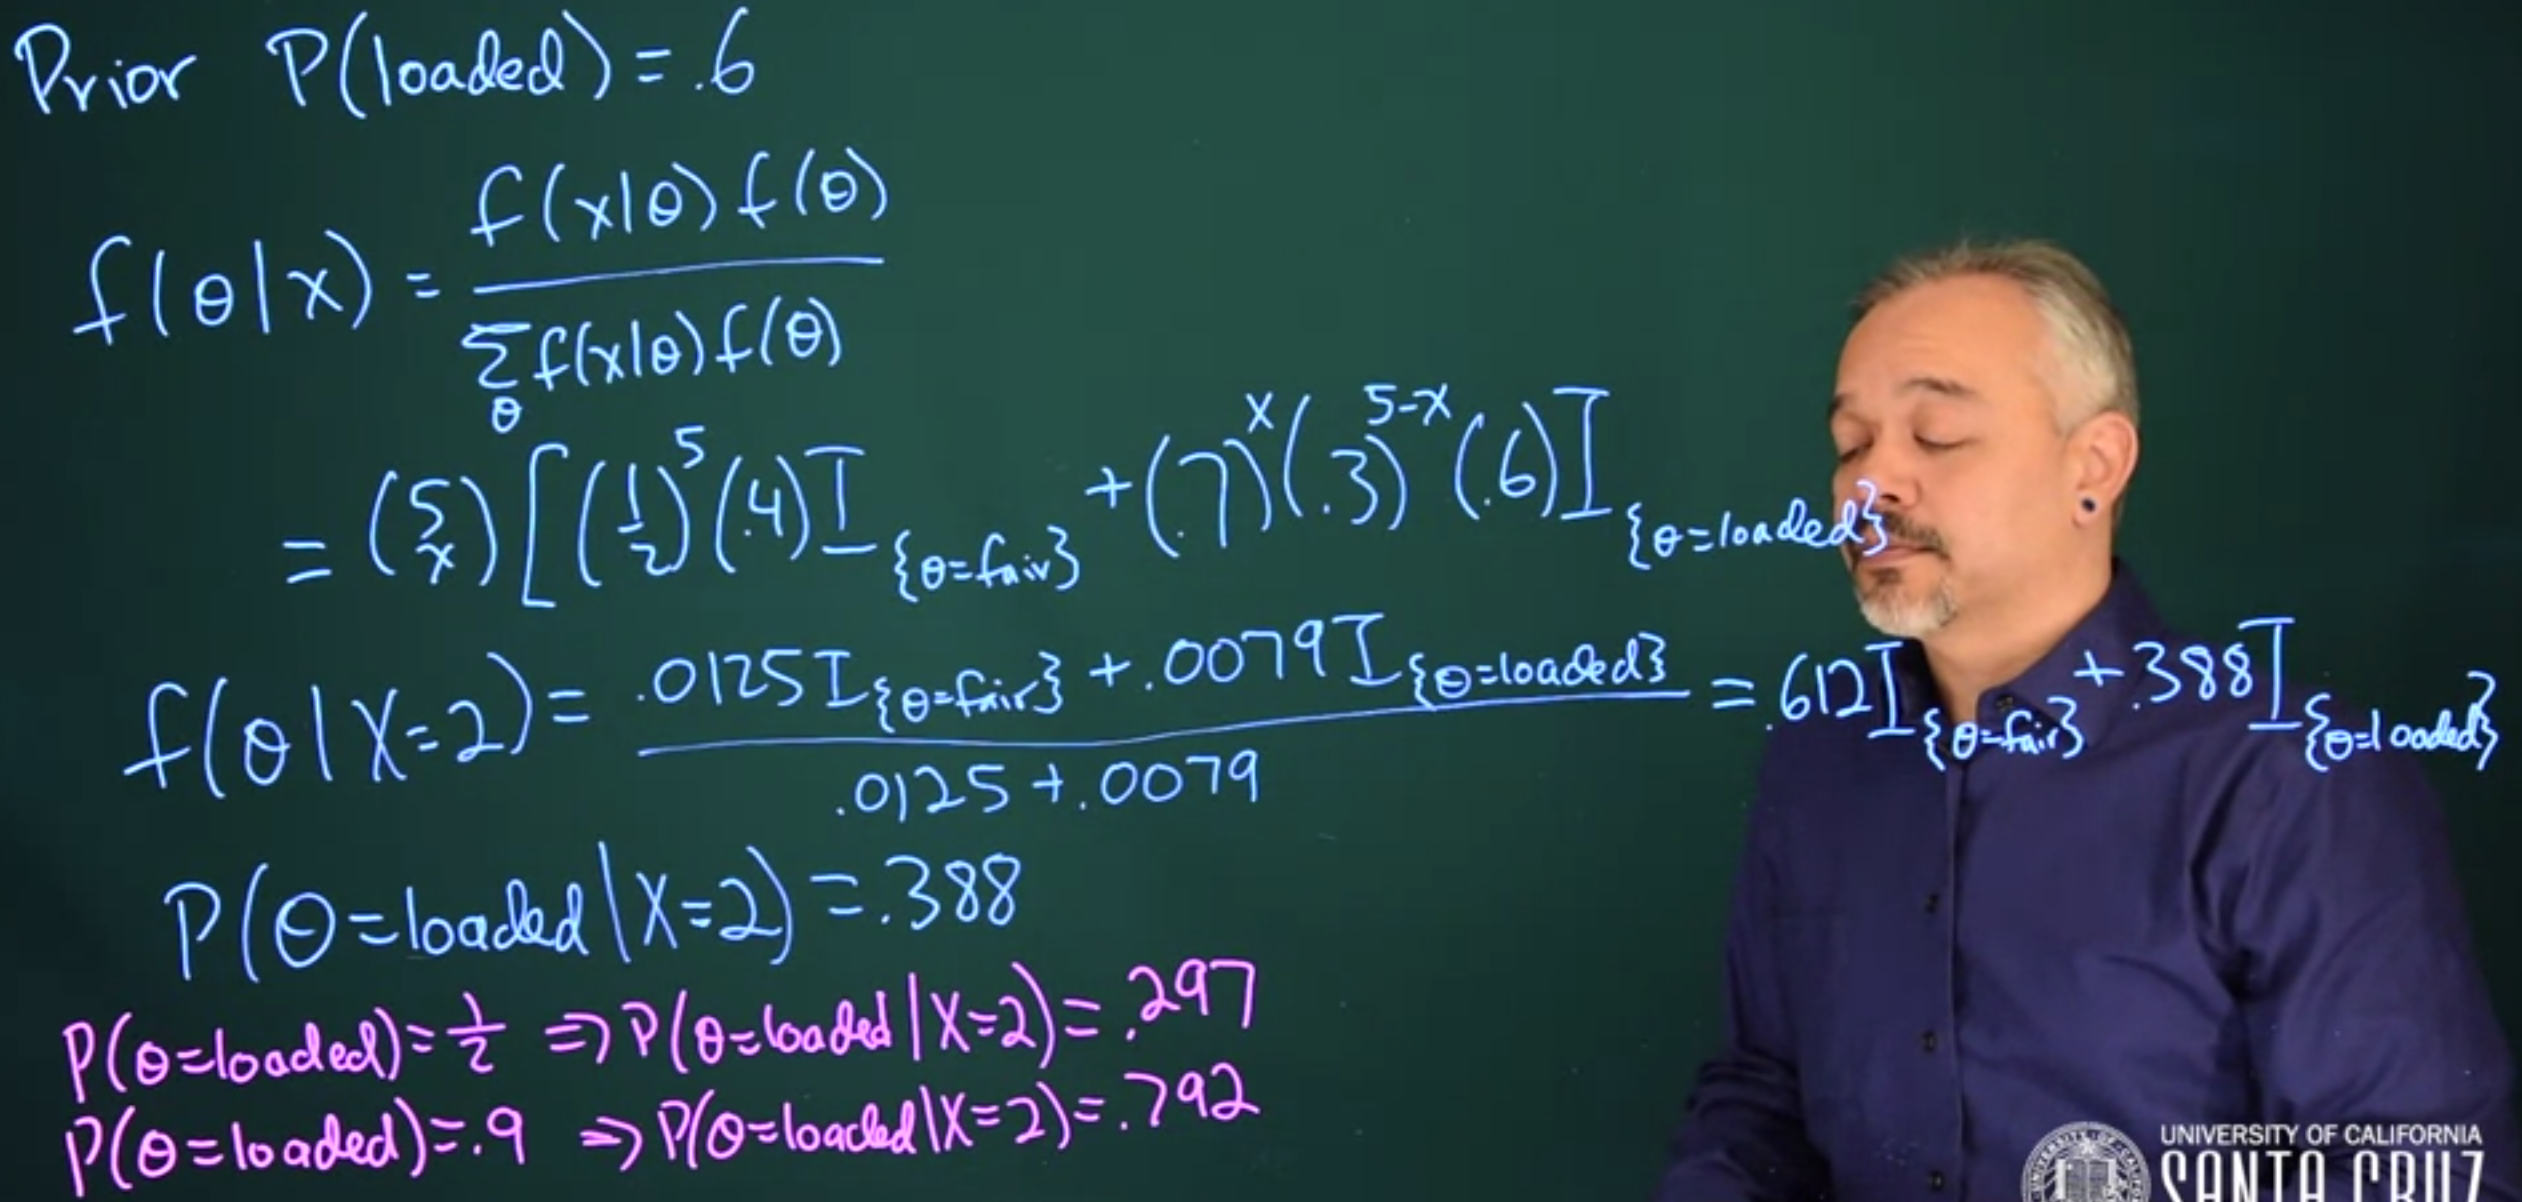 Prior P(loaded) = .6
f(θ|x) = f(x|θ) f(θ) / Σ_θ f(x|θ) f(θ)
= (5 x) [(1/2)^5 (.4) I_{θ=fair} + (.7)^x (.3)^{5-x} (.6) I_{θ=loaded}
f(θ|X=2) = .0125 I_{θ=fair} + .0079 I_{θ=loaded} / .0125 + .0079 = .612 I_{θ=fair} + .388 I_{θ=loaded}
P(θ=loaded|X=2) = .388
P(θ=loaded) = 1/2 ⇒ P(θ=loaded|X=2) = .297
P(θ=loaded) = .9 ⇒ P(θ=loaded|X=2) = .792
UNIVERSITY OF CALIFORNIA
SANTA CRUZ